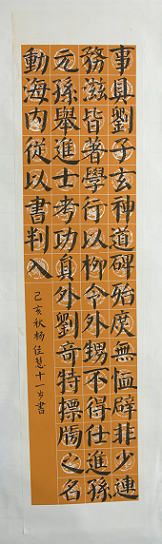 事具劉子玄神道碑殆庶無恤辟非少連
務滋皆著學行以柳令外甥不得仕進孫
元孫舉進士考功員外劉奇特摽牓之名
動海内從以書判入
己亥秋杨佳慧十一岁書